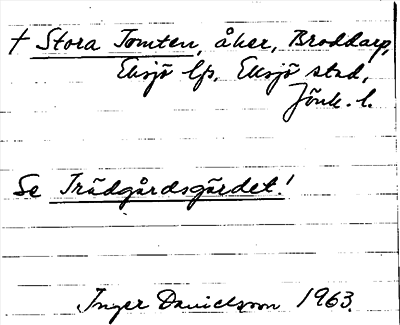 † Stora Tomten, åker, Broddarp,
Eksjö lfs. Eksjö stad,
Jönk. l.
Se Trädgårdsgärdet!
Inger Danielsson 1963.